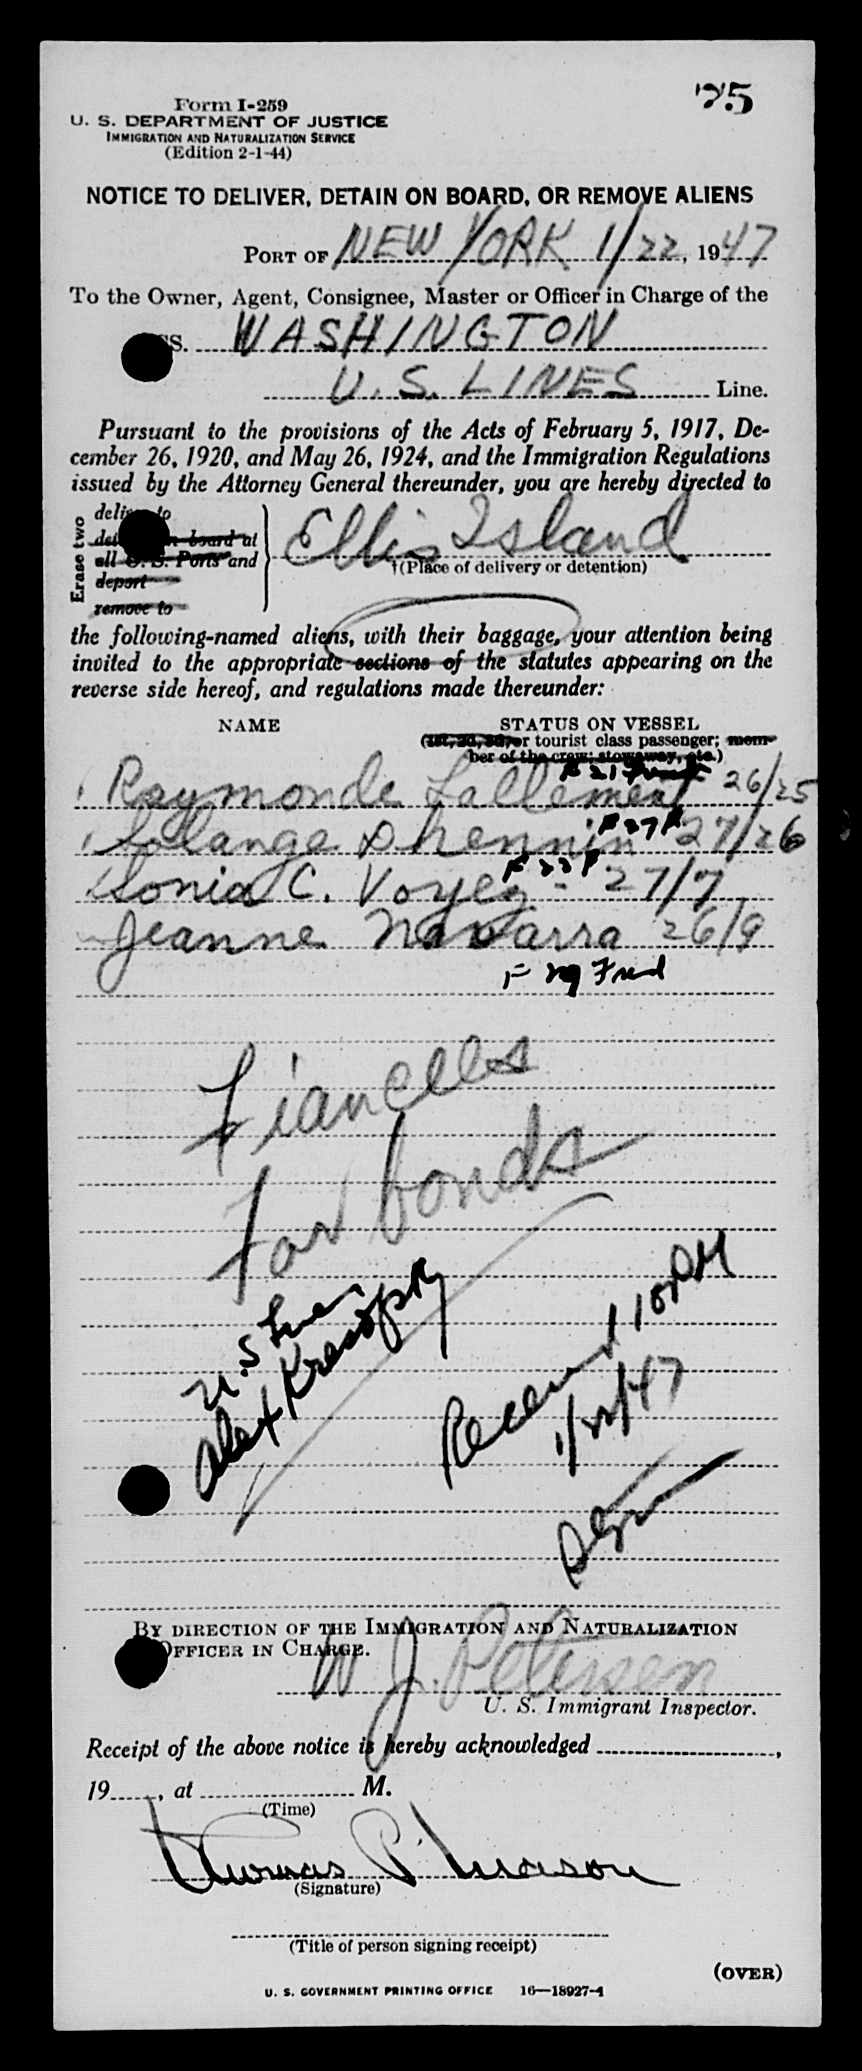 '25
Form I-259
U. S. DEPARTMENT OF JUSTICE
IMMIGRATION AND NATURALIZATION SERVICE
(Edition 2-1-44)
NOTICE TO DELIVER, DETAIN ON BOARD, OR REMOVE ALIENS
PORT OF NEW YORK 1/22, 1947
To the Owner, Agent, Consignee, Master or Officer in Charge of the
SS. WASHINGTON
U.S. LINES Line.
Pursuant to the provisions of the Acts of February 5, 1917, De-
cember 26, 1920, and May 26, 1924, and the Immigration Regulations
issued by the Attorney General thereunder, you are hereby directed to
Erase two
deliver to
detain on board at
all U. S. Ports and
deport
remove to
Ellis Island
†(Place of delivery or detention)
the following-named aliens, with their baggage, your attention being
invited to the appropriate sections of the statutes appearing on the
reverse side hereof, and regulations made thereunder:
NAME STATUS ON VESSEL
(1st, 2d, 3d, or tourist class passenger; mem-
ber of the crew; stowaway, etc.)
F 21 French
Raymonde Lallement 26/25
F 27 F
Solange Dhennin 27/26
F 22 F
Sonia C. Voyez - 27/7
Jeanne Navarra 26/9
F 29 Fred
Fiancees
for bonds
U.S Lines
Alex Kresofsky
Received 110PM
1/22/47
BY DIRECTION OF THE IMMIGRATION AND NATURALIZATION
OFFICER IN CHARGE.
W J. Petersen
U. S. Immigrant Inspector.
Receipt of the above notice is hereby acknowledged ,
19 , at M.
(Time)
Thomas P. Mason
(Signature)
(Title of person signing receipt)
(OVER)
U. S. GOVERNMENT PRINTING OFFICE 16—18927-1